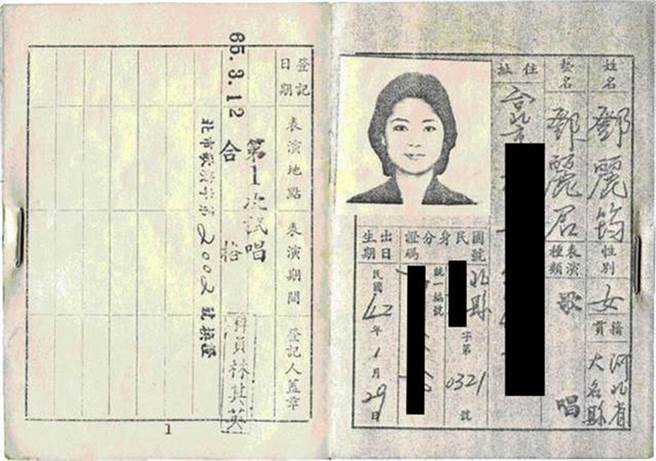 姓名 鄧麗筠 性別 女 籍貫 河北省大名縣
藝名 鄧麗君 表演種類 歌唱
住址 台北市
國民身分證號碼 北縣 字第 0321 號
統一編號
出生日期 民國42年1月29日
登記日期 表演地點 表演期間 登記人蓋章
65.3.12 第1次試唱
合
北市 2002號換證
員林其英
1